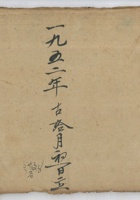 一九五二年古拾月初一日立